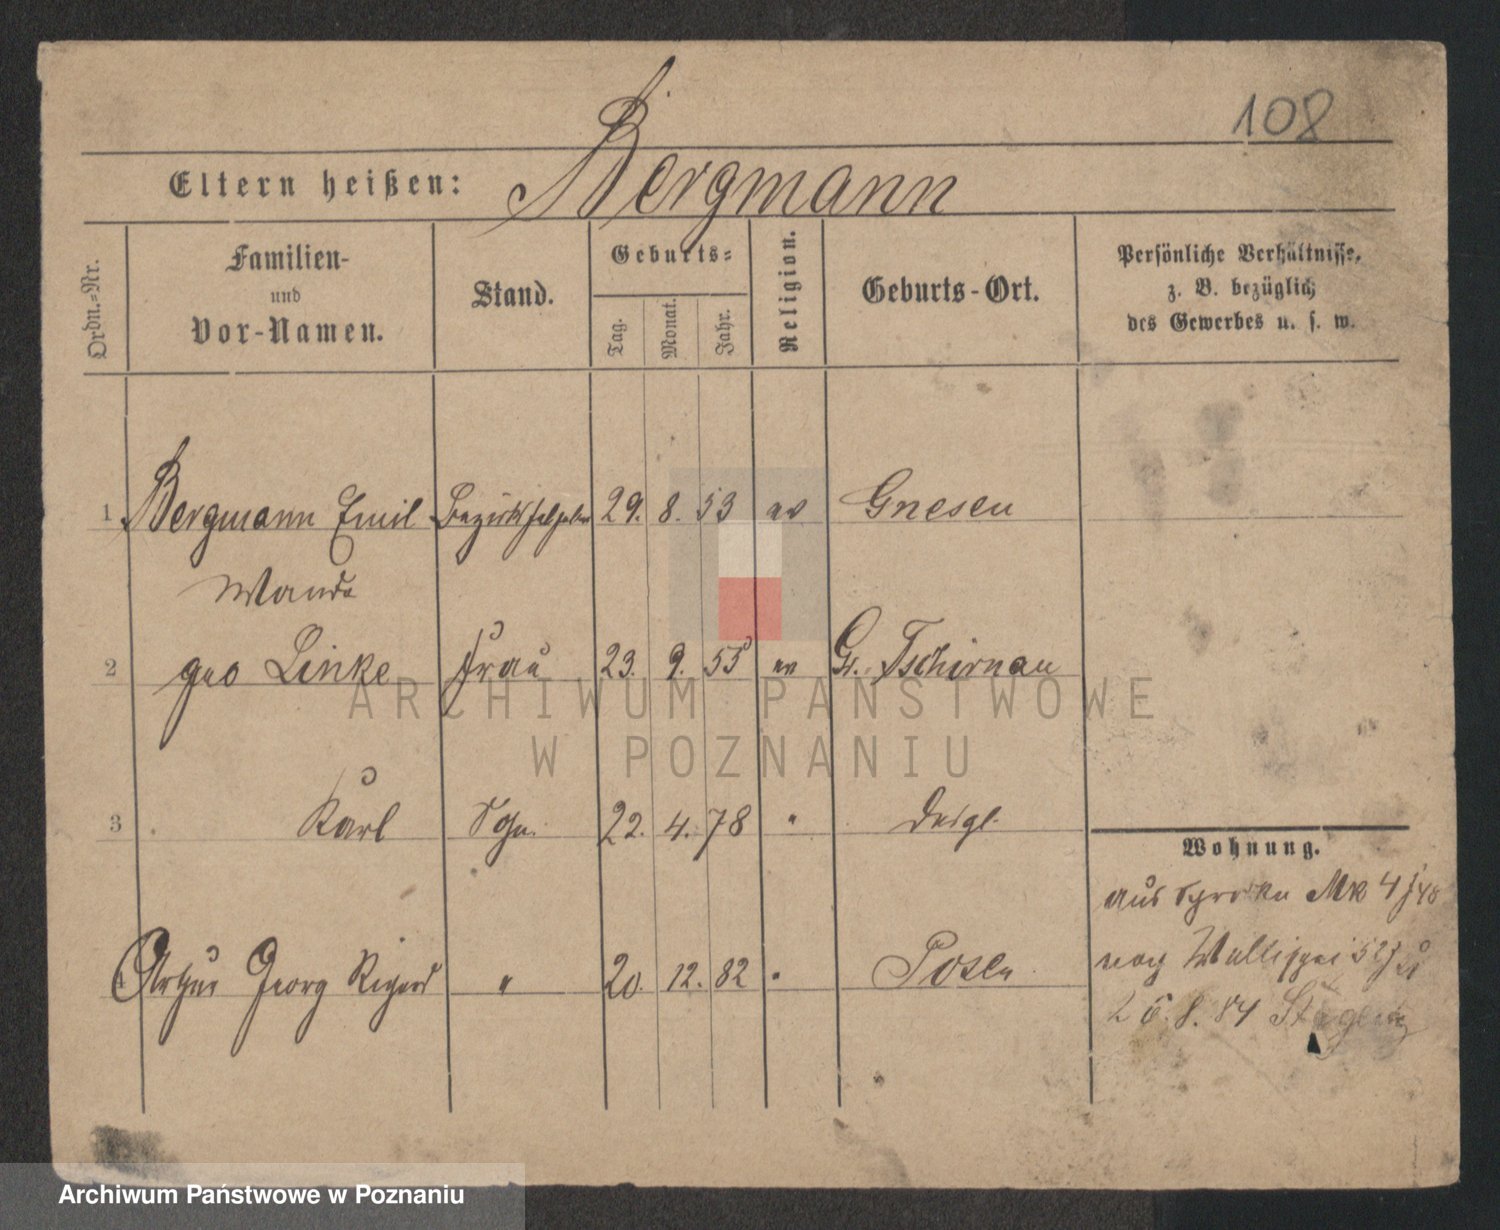 108
Eltern heißen: Bergmann
Ordn.-Nr.
Familien-
und
Vor-Namen.
Stand.
Geburts-
Tag.
Monat.
Jahr.
Religion.
Geburts-Ort.
Persönliche Verhältnisse,
z. B. bezüglich
des Gewerbes u. s. w.
1 Bergmann Emil 29. 8. 53 ev Gnesen
Wanda
2 geb Linke Frau 23. 9. 55 ev Gr. Tschirnau
3 Karl Sohn 22. 4. 78 " desgl.
4 Arthur Georg Richard " 20. 12. 82 " Posen
Wohnung.
aus
nach Wallischei
8. 84
ARCHIWUM PAŃSTWOWE
W POZNANIU
Archiwum Państwowe w Poznaniu